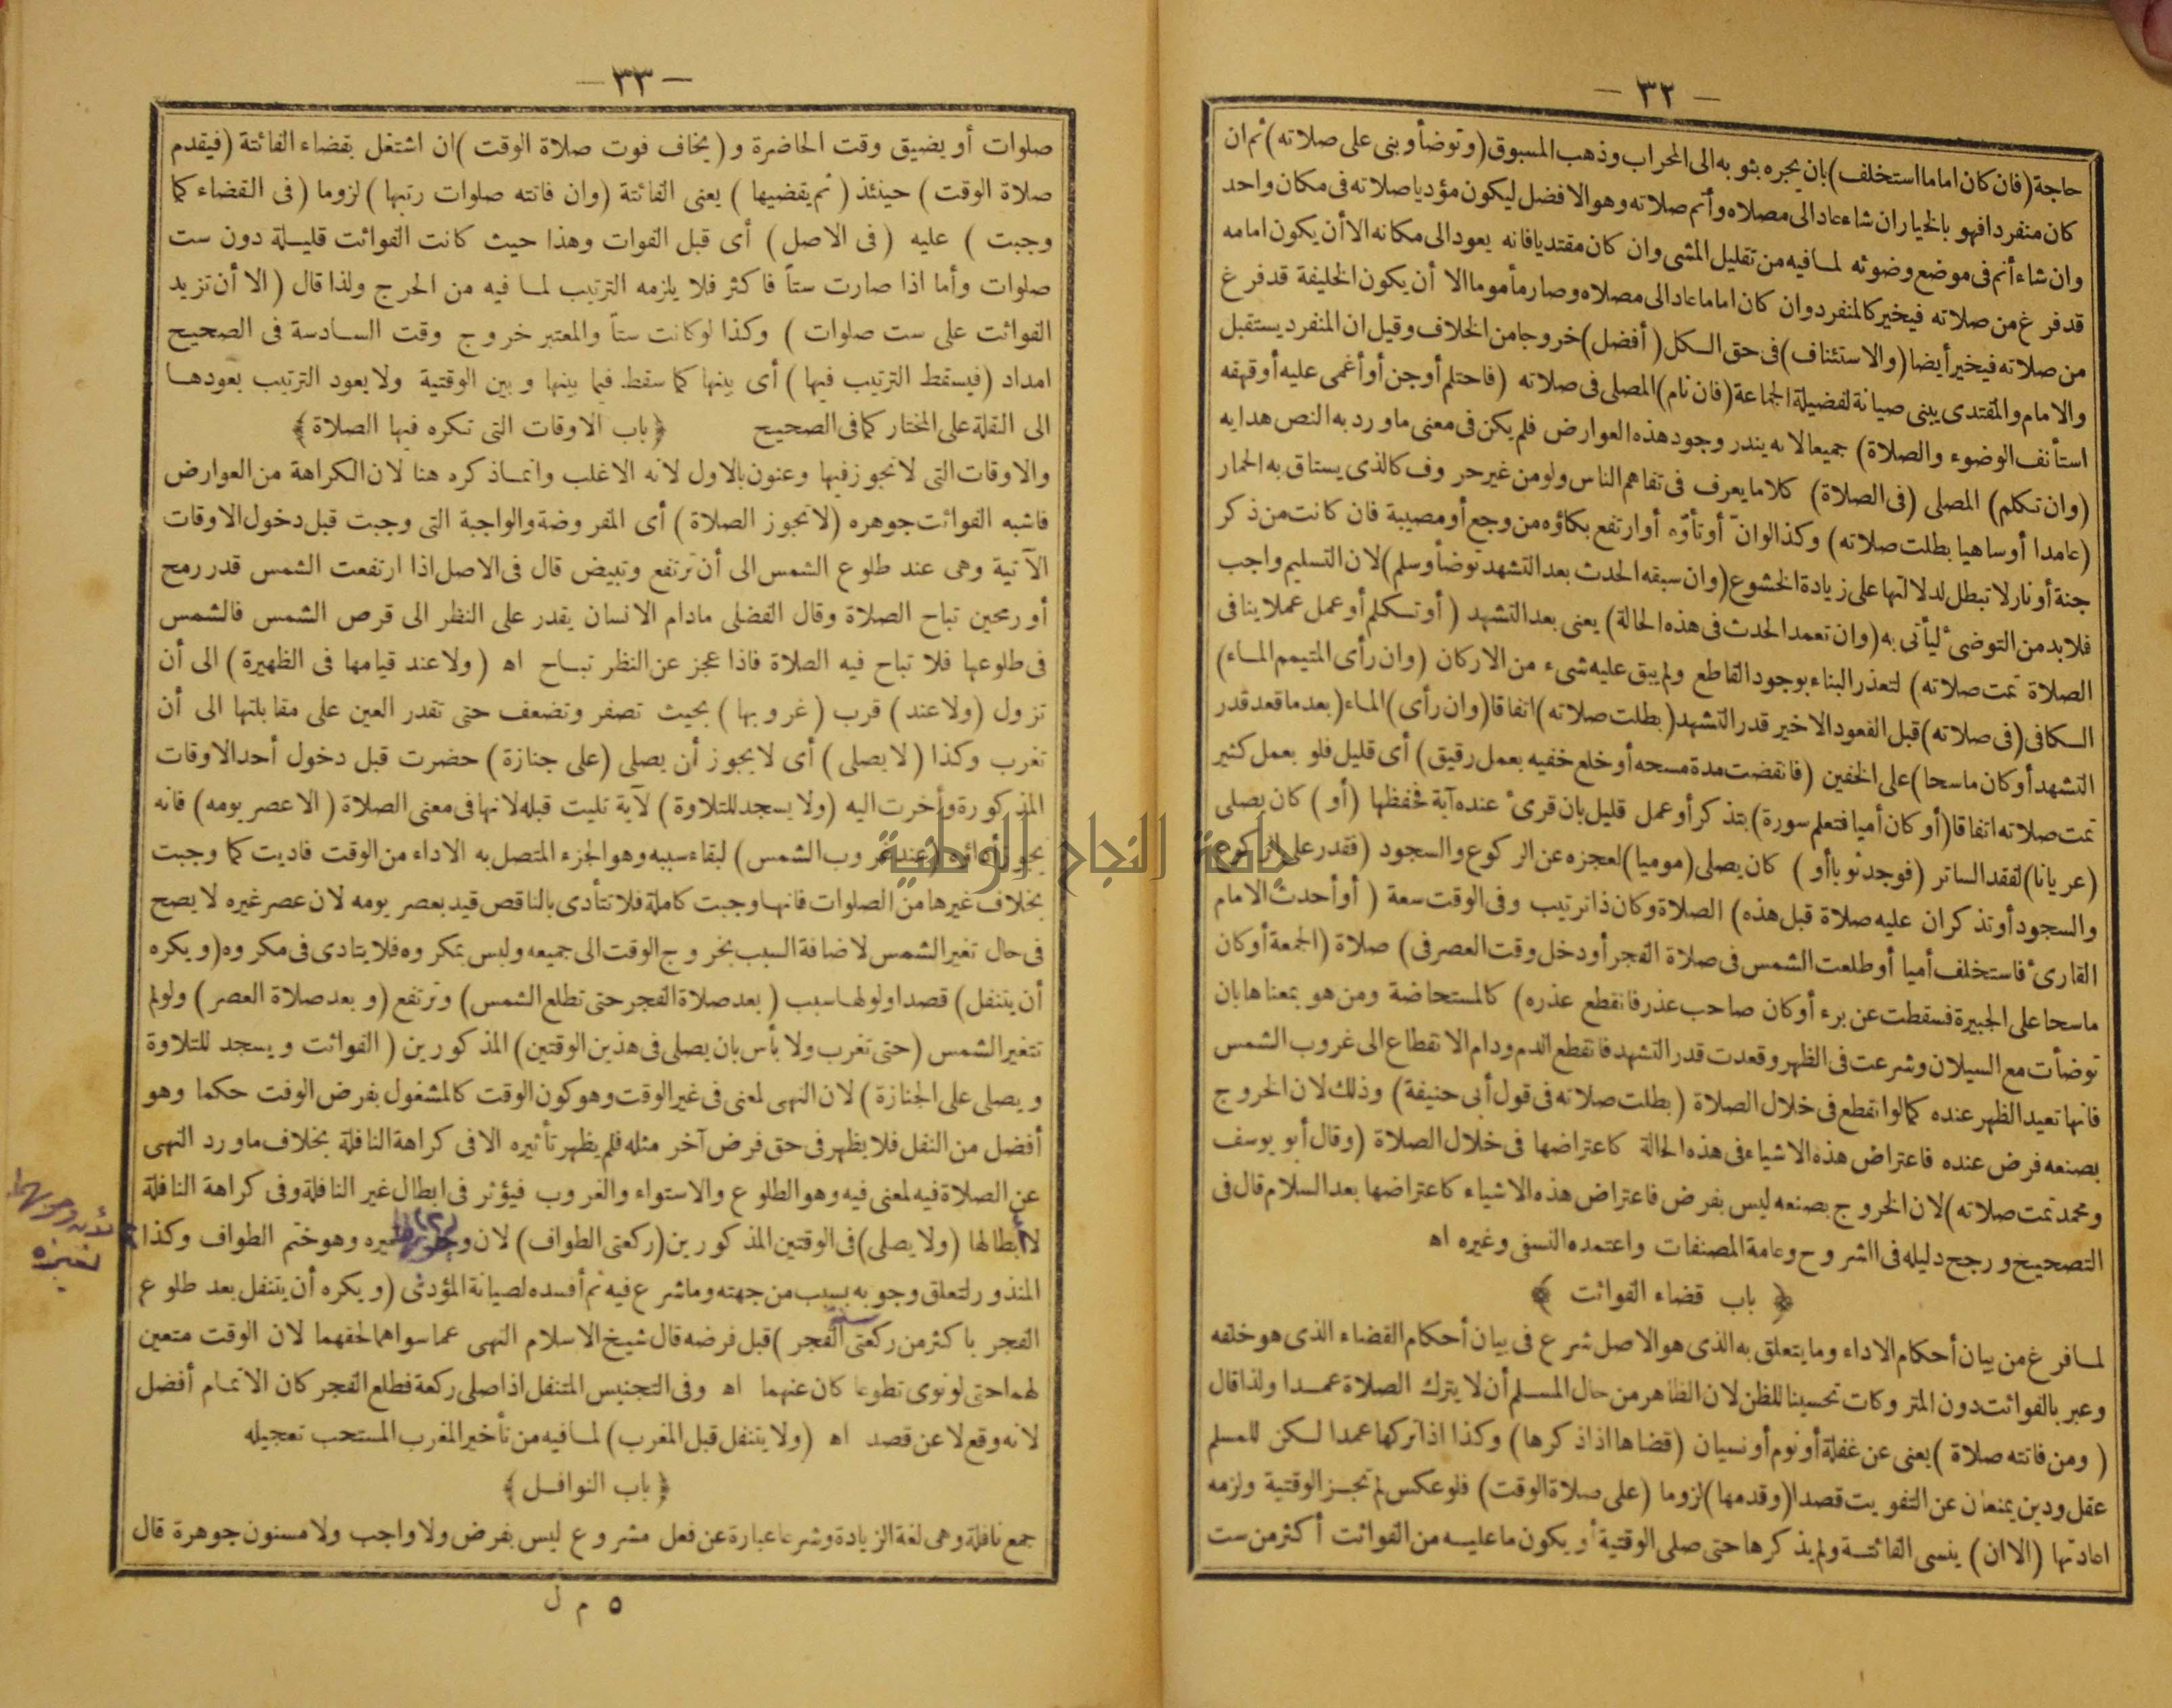 — ٣٢ —
حاجة (فان كان اماما استخلف) بان يجره بثوبه الى المحراب وذهب المسبوق (وتوضأ وبنى على صلاته) ثم ان
كان منفردا فهو بالخيار ان شاء عاد الى مصلاه وأتم صلاته وهو الافضل ليكون مؤديا صلاته فى مكان واحد
وان شاء أتم فى موضع وضوئه لما فيه من تقليل المشى وان كان مقتديا فانه يعود الى مكانه الا أن يكون امامه
قد فرغ من صلاته فيخير كالمنفرد وان كان اماما عاد الى مصلاه وصار مأموما الا أن يكون الخليفة قد فرغ
من صلاته فيخير أيضا (والاستئناف) فى حق الكل (أفضل) خروجا من الخلاف وقيل ان المنفرد يستقبل
والامام والمقتدى يبنى صيانة لفضيلة الجماعة (فان نام) المصلى فى صلاته (فاحتلم أوجن أو أغمى عليه أو قهقه
استأنف الوضوء والصلاة) جميعا لانه يندر وجود هذه العوارض فلم يكن فى معنى ما ورد به النص هدايه
(وان تكلم) المصلى (فى الصلاة) كلاما يعرف فى تفاهم الناس ولو من غير حروف كالذى يستاق به الحمار
(عامدا أوساهيا بطلت صلاته) وكذا لوانّ أوتأوّه أو ارتفع بكاؤه من وجع أومصيبة فان كانت من ذكر
جنة أو نار لا تبطل لدلالتها على زيادة الخشوع (وان سبقه الحدث بعد التشهد توضأ وسلم) لان التسليم واجب
فلا بد من التوضئ ليأتى به (وان تعمد الحدث فى هذه الحالة) يعنى بعد التشهد (أو تكلم أو عمل عملا ينافى
الصلاة تمت صلاته) لتعذر البناء بوجود القاطع ولم يبق عليه شىء من الاركان (وان رأى المتيمم الماء)
الكافى (فى صلاته) قبل القعود الاخير قدر التشهد (بطلت صلاته) اتفاقا (وان رأى) الماء (بعد ما قعد قدر
التشهد أو كان ماسحا) على الخفين (فانقضت مدة مسحه أو خلع خفيه بعمل رقيق) أى قليل فلو بعمل كثير
تمت صلاته اتفاقا (أو كان أميا فتعلم سورة) بتذكر أو عمل قليل بان قرئ عنده آية فحفظها (أو) كان يصلى
(عريانا) لفقد الساتر (فوجد ثوبا أو) كان يصلى (موميا) لعجزه عن الركوع والسجود (فقدر على الركوع
والسجود أو تذكر ان عليه صلاة قبل هذه) الصلاة وكان ذا ترتيب وفى الوقت سعة (أو أحدث الامام
القارئ فاستخلف أميا أو طلعت الشمس فى صلاة الفجر أو دخل وقت العصر فى) صلاة (الجمعة أو كان
ماسحا على الجبيرة فسقطت عن برء أو كان صاحب عذر فانقطع عذره) كالمستحاضة ومن هو بمعناها بان
توضأت مع السيلان وشرعت فى الظهر وقعدت قدر التشهد فانقطع الدم ودام الانقطاع الى غروب الشمس
فانها تعيد الظهر عنده كما لو انقطع فى خلال الصلاة (بطلت صلاته فى قول أبى حنيفة) وذلك لان الخروج
بصنعه فرض عنده فاعتراض هذه الاشياء فى هذه الحالة كاعتراضها فى خلال الصلاة (وقال أبو يوسف
ومحمد تمت صلاته) لان الخروج بصنعه ليس بفرض فاعتراض هذه الاشياء كاعتراضها بعد السلام قال فى
التصحيح ورجح دليله فى الشروح وعامة المصنفات واعتمده النسفى وغيره اه
﴿ باب قضاء الفوائت ﴾
لما فرغ من بيان أحكام الاداء وما يتعلق به الذى هو الاصل شرع فى بيان أحكام القضاء الذى هو خلفه
وعبر بالفوائت دون المتروكات تحسينا للظن لان الظاهر من حال المسلم أن لا يترك الصلاة عمدا ولذا قال
(ومن فاتته صلاة) يعنى عن غفلة أو نوم أو نسيان (قضاها اذا ذكرها) وكذا اذا تركها عمدا لكن للمسلم
عقل ودين يمنعان عن التفويت قصدا (وقدمها) لزوما (على صلاة الوقت) فلو عكس لم تجز الوقتية ولزمه
اعادتها (الا ان) ينسى الفائتة ولم يذكرها حتى صلى الوقتية أو يكون ما عليه من الفوائت أكثر من ست
— ٣٣ —
صلوات أو يضيق وقت الحاضرة و (يخاف فوت صلاة الوقت) ان اشتغل بقضاء الفائتة (فيقدم
صلاة الوقت) حينئذ (ثم يقضيها) يعنى الفائتة (وان فاتته صلوات رتبها) لزوما (فى القضاء كما
وجبت) عليه (فى الاصل) أى قبل الفوات وهذا حيث كانت الفوائت قليلة دون ست
صلوات وأما اذا صارت ستاً فاكثر فلا يلزمه الترتيب لما فيه من الحرج ولذا قال (الا أن تزيد
الفوائت على ست صلوات) وكذا لو كانت ستاً والمعتبر خروج وقت السادسة فى الصحيح
امداد (فيسقط الترتيب فيها) أى بينها كما سقط فيما بينها وبين الوقتية ولا يعود الترتيب بعودها
الى القلة على المختار كما فى الصحيح ﴿باب الاوقات التى تكره فيها الصلاة﴾
والاوقات التى لا تجوز فيها وعنون بالاول لانه الاغلب وانما ذكره هنا لان الكراهة من العوارض
فاشبه الفوائت جوهره (لا تجوز الصلاة) أى المفروضة والواجبة التى وجبت قبل دخول الاوقات
الآتية وهى عند طلوع الشمس الى أن ترتفع وتبيض قال فى الاصل اذا ارتفعت الشمس قدر رمح
أو رمحين تباح الصلاة وقال الفضلى مادام الانسان يقدر على النظر الى قرص الشمس فالشمس
فى طلوعها فلا تباح فيه الصلاة فاذا عجز عن النظر تباح اه (ولا عند قيامها فى الظهيرة) الى أن
تزول (ولا عند) قرب (غروبها) بحيث تصفر وتضعف حتى تقدر العين على مقابلتها الى أن
تغرب وكذا (لا يصلى) أى لا يجوز أن يصلى (على جنازة) حضرت قبل دخول أحد الاوقات
المذكورة وأخرت اليه (ولا يسجد للتلاوة) لآية تليت قبله لانها فى معنى الصلاة (الا عصر يومه) فانه
يجوز أداؤه (عند غروب الشمس) لبقاء سببه وهو الجزء المتصل به الاداء من الوقت فاديت كما وجبت
بخلاف غيرها من الصلوات فانها وجبت كاملة فلا تتأدى بالناقص قيد بعصر يومه لان عصر غيره لا يصح
فى حال تغير الشمس لاضافة السبب بخروج الوقت الى جميعه وليس بمكروه فلا يتادى فى مكروه (ويكره
أن يتنفل) قصدا ولو لها سبب (بعد صلاة الفجر حتى تطلع الشمس) وترتفع (وبعد صلاة العصر) ولو لم
تتغير الشمس (حتى تغرب ولا بأس بان يصلى فى هذين الوقتين) المذكورين (الفوائت ويسجد للتلاوة
ويصلى على الجنازة) لان النهى لمعنى فى غير الوقت وهو كون الوقت كالمشغول بفرض الوقت حكما وهو
أفضل من النفل فلا يظهر فى حق فرض آخر مثله فلم يظهر تأثيره الا فى كراهة النافلة بخلاف ما ورد النهى
عن الصلاة فيه لمعنى فيه وهو الطلوع والاستواء والغروب فيؤثر فى ابطال غير النافلة وفى كراهة النافلة
لا ابطالها (ولا يصلى) فى الوقتين المذكورين (ركعتى الطواف) لان وجوبهما لغيره وهو ختم الطواف وكذا
المنذور لتعلق وجوبه بسبب من جهته وما شرع فيه ثم أفسده لصيانة المؤدى (ويكره أن يتنفل بعد طلوع
الفجر باكثر من ركعتى الفجر) قبل فرضه قال شيخ الاسلام النهى عما سواهما لحقهما لان الوقت متعين
لهما حتى لو نوى تطوعا كان عنهما اه وفى التجنيس المتنفل اذا صلى ركعة فطلع الفجر كان الاتمام أفضل
لانه وقع لا عن قصد اه (ولا يتنفل قبل المغرب) لما فيه من تأخير المغرب المستحب تعجيله
﴿باب النوافل﴾
جمع نافلة وهى لغة الزيادة وشرعا عبارة عن فعل مشروع ليس بفرض ولا واجب ولا مسنون جوهرة قال
٥ م ل
لغيره
سنة
جامعة النجاح الوطنية